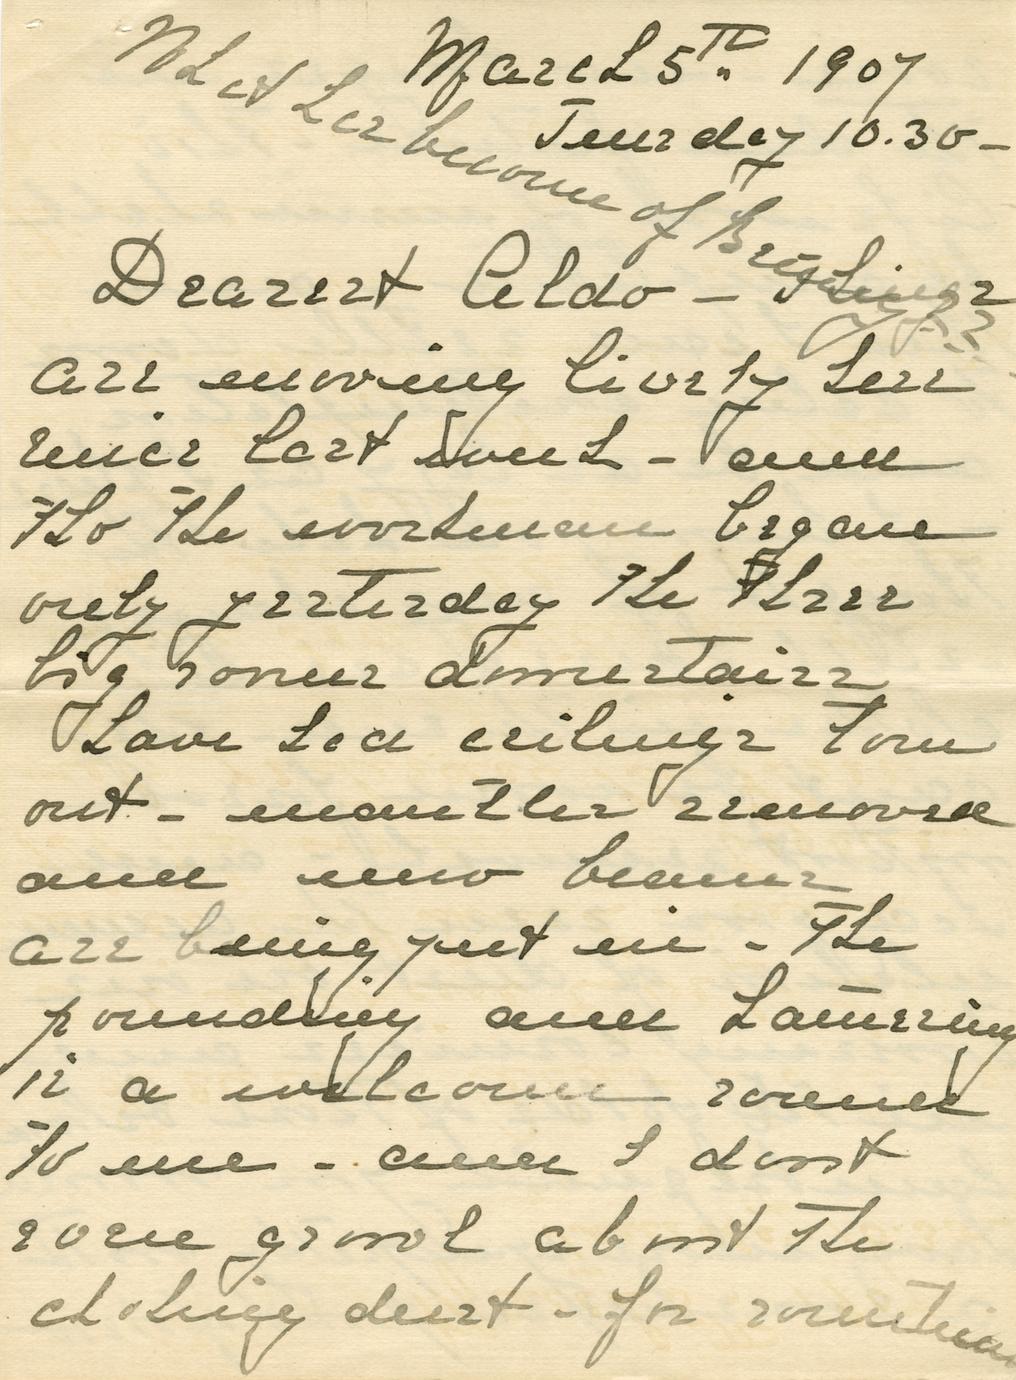 What has become of Brightings??
March 5th. 1907
Tuesday 10.30-
Dearest Aldo - Things
are moving lively here
since last week - and
tho the workman began
only yesterday the three
big rooms downstairs
have had ceilings torn
out - mantles removed
and new beams
are being put in - The
pounding and hammering
is a welcome sound
to me - and I dont
even growl about the
choking dust - for something